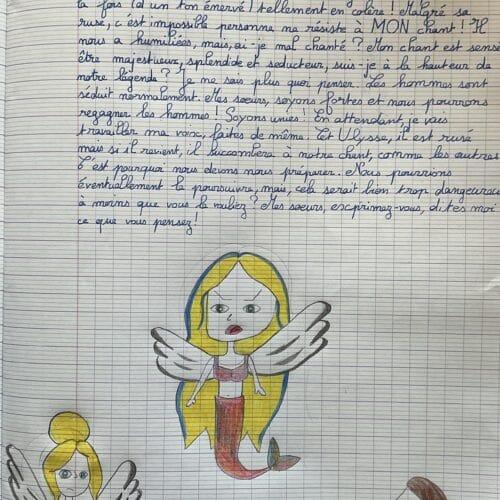 la fois (d'un ton énervé) tellement en colère! Malgré sa
ruse, c'est impossible personne ne résiste à MON chant! Il
nous a humiliées, mais, ai-je mal chanté? Mon chant est sensé
être majestueux, splendide et seducteur, suis-je à la hauteur de
notre légende? Je ne sais plus quoi penser. Les hommes sont
séduit normalement. Mes sœurs, soyons fortes et nous pourrons
regagner les hommes! Soyons unies! En attendant, je vais
travailler ma voix, faites de même. Et Ulysse, il est rusé
mais si il revient, il succombera à notre chant, comme les autres
C'est pourquoi nous devons nous préparer. Nous pourrions
éventuellement le poursuivre, mais, cela serait bien trop dangeureux
à moins que vous le vouliez? Mes sœurs, exprimez-vous, dites moi
ce que vous pensez!